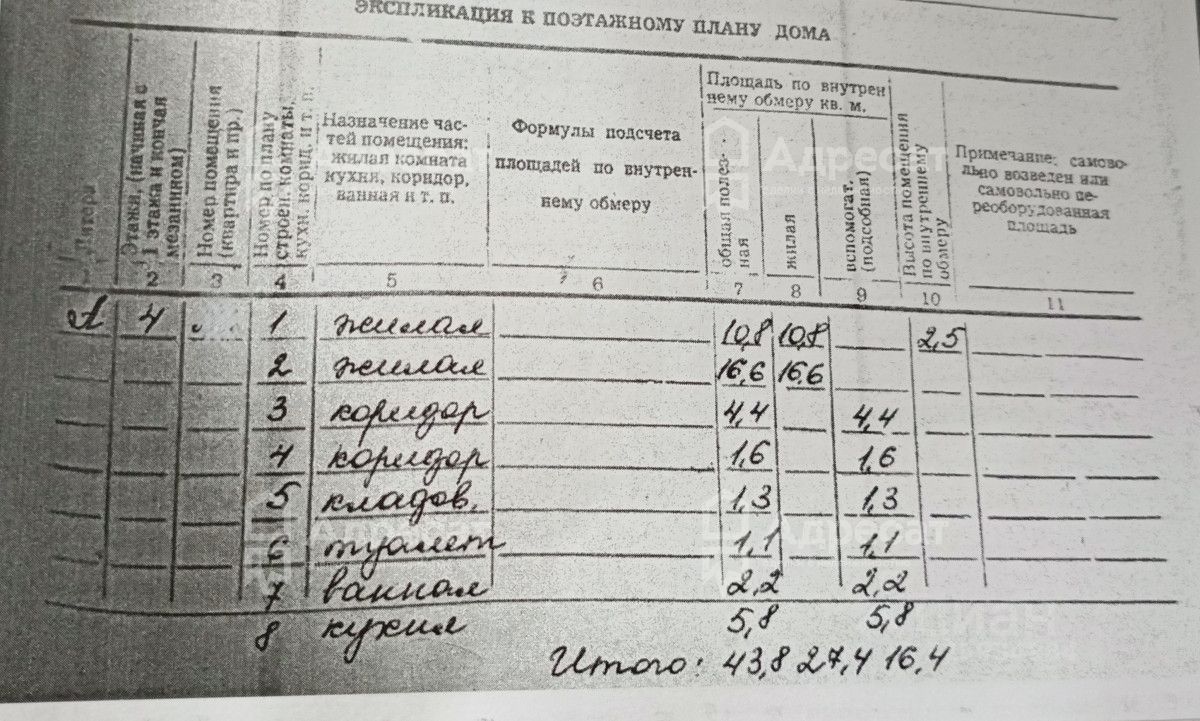 ЭКСПЛИКАЦИЯ К ПОЭТАЖНОМУ ПЛАНУ ДОМА
Литеры
Этажи, (начиная с 1 этажа и кончая мезанином)
Номер помещения (квартира и пр.)
Номер по плану строен. комнаты, кухн. корид. и т. п.
Назначение час-
тей помещения:
жилая комната
кухня, коридор,
ванная и т. п.
Формулы подсчета
площадей по внутрен-
нему обмеру
Площадь по внутрен
нему обмеру кв. м.
общая полез-
ная
жилая
вспомогат.
(подсобная)
Высота помещения
по внутреннему
обмеру
Примечание: самово-
льно возведен или
самовольно пе-
реоборудованная
площадь
2 3 4 5 6 7 8 9 10 11
А 4 1 жилая 10,8 10,8 2,5
2 жилая 16,6 16,6
3 коридор 4,4 4,4
4 коридор 1,6 1,6
5 кладов. 1,3 1,3
6 туалет 1,1 1,1
7 ванная 2,2 2,2
8 кухня 5,8 5,8
Итого: 43,8 27,4 16,4
Адресат
Адресат
Адресат
циан